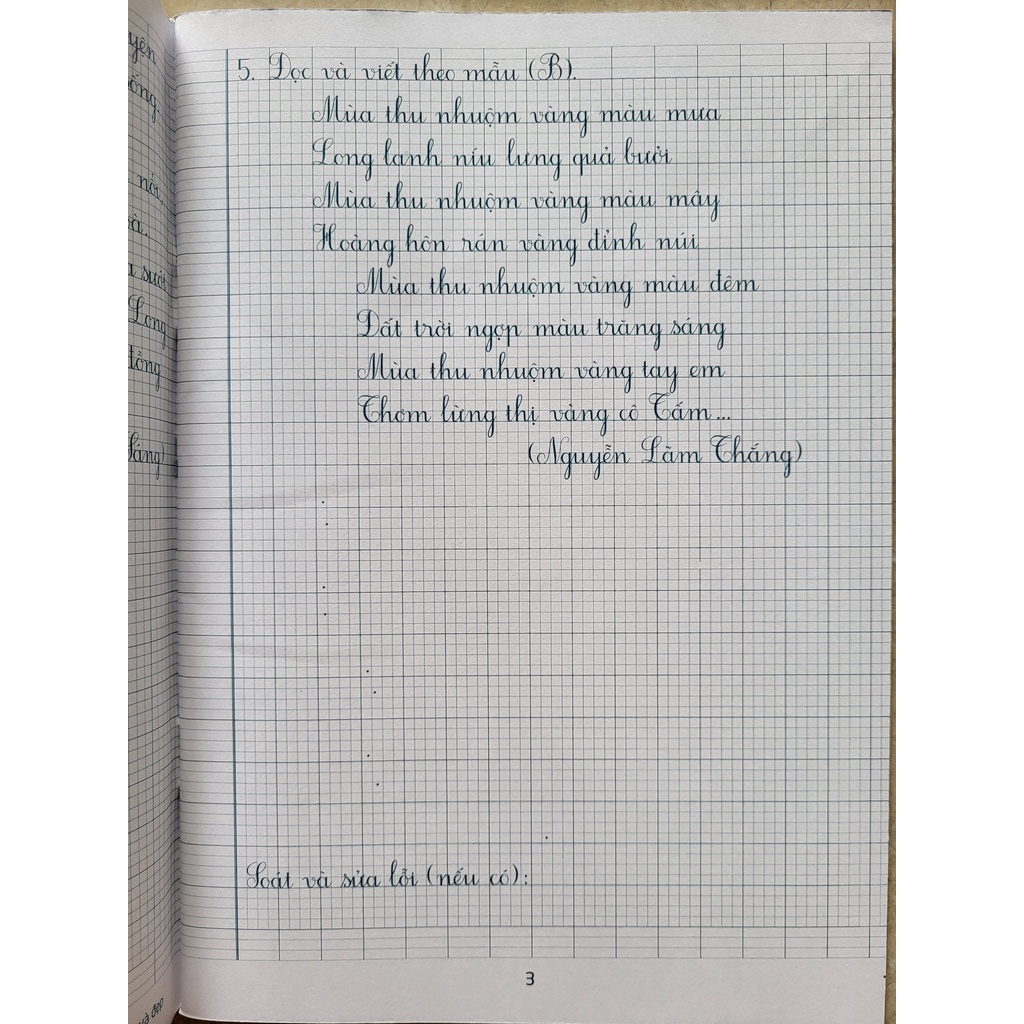 yên
ống.
nói.
sà.
a suối
Long
đồng
5. Đọc và viết theo mẫu (B).
Mùa thu nhuộm vàng màu mưa
Long lanh níu lưng quả bưởi
Mùa thu nhuộm vàng màu mây
Hoàng hôn rán vàng đỉnh núi
Mùa thu nhuộm vàng màu đêm
Đất trời ngợp màu trăng sáng
Mùa thu nhuộm vàng tay em
Thơm lừng thị vàng cô Tấm...
(Nguyễn Lãm Thắng)
Soát và sửa lỗi (nếu có):
3
và đẹp